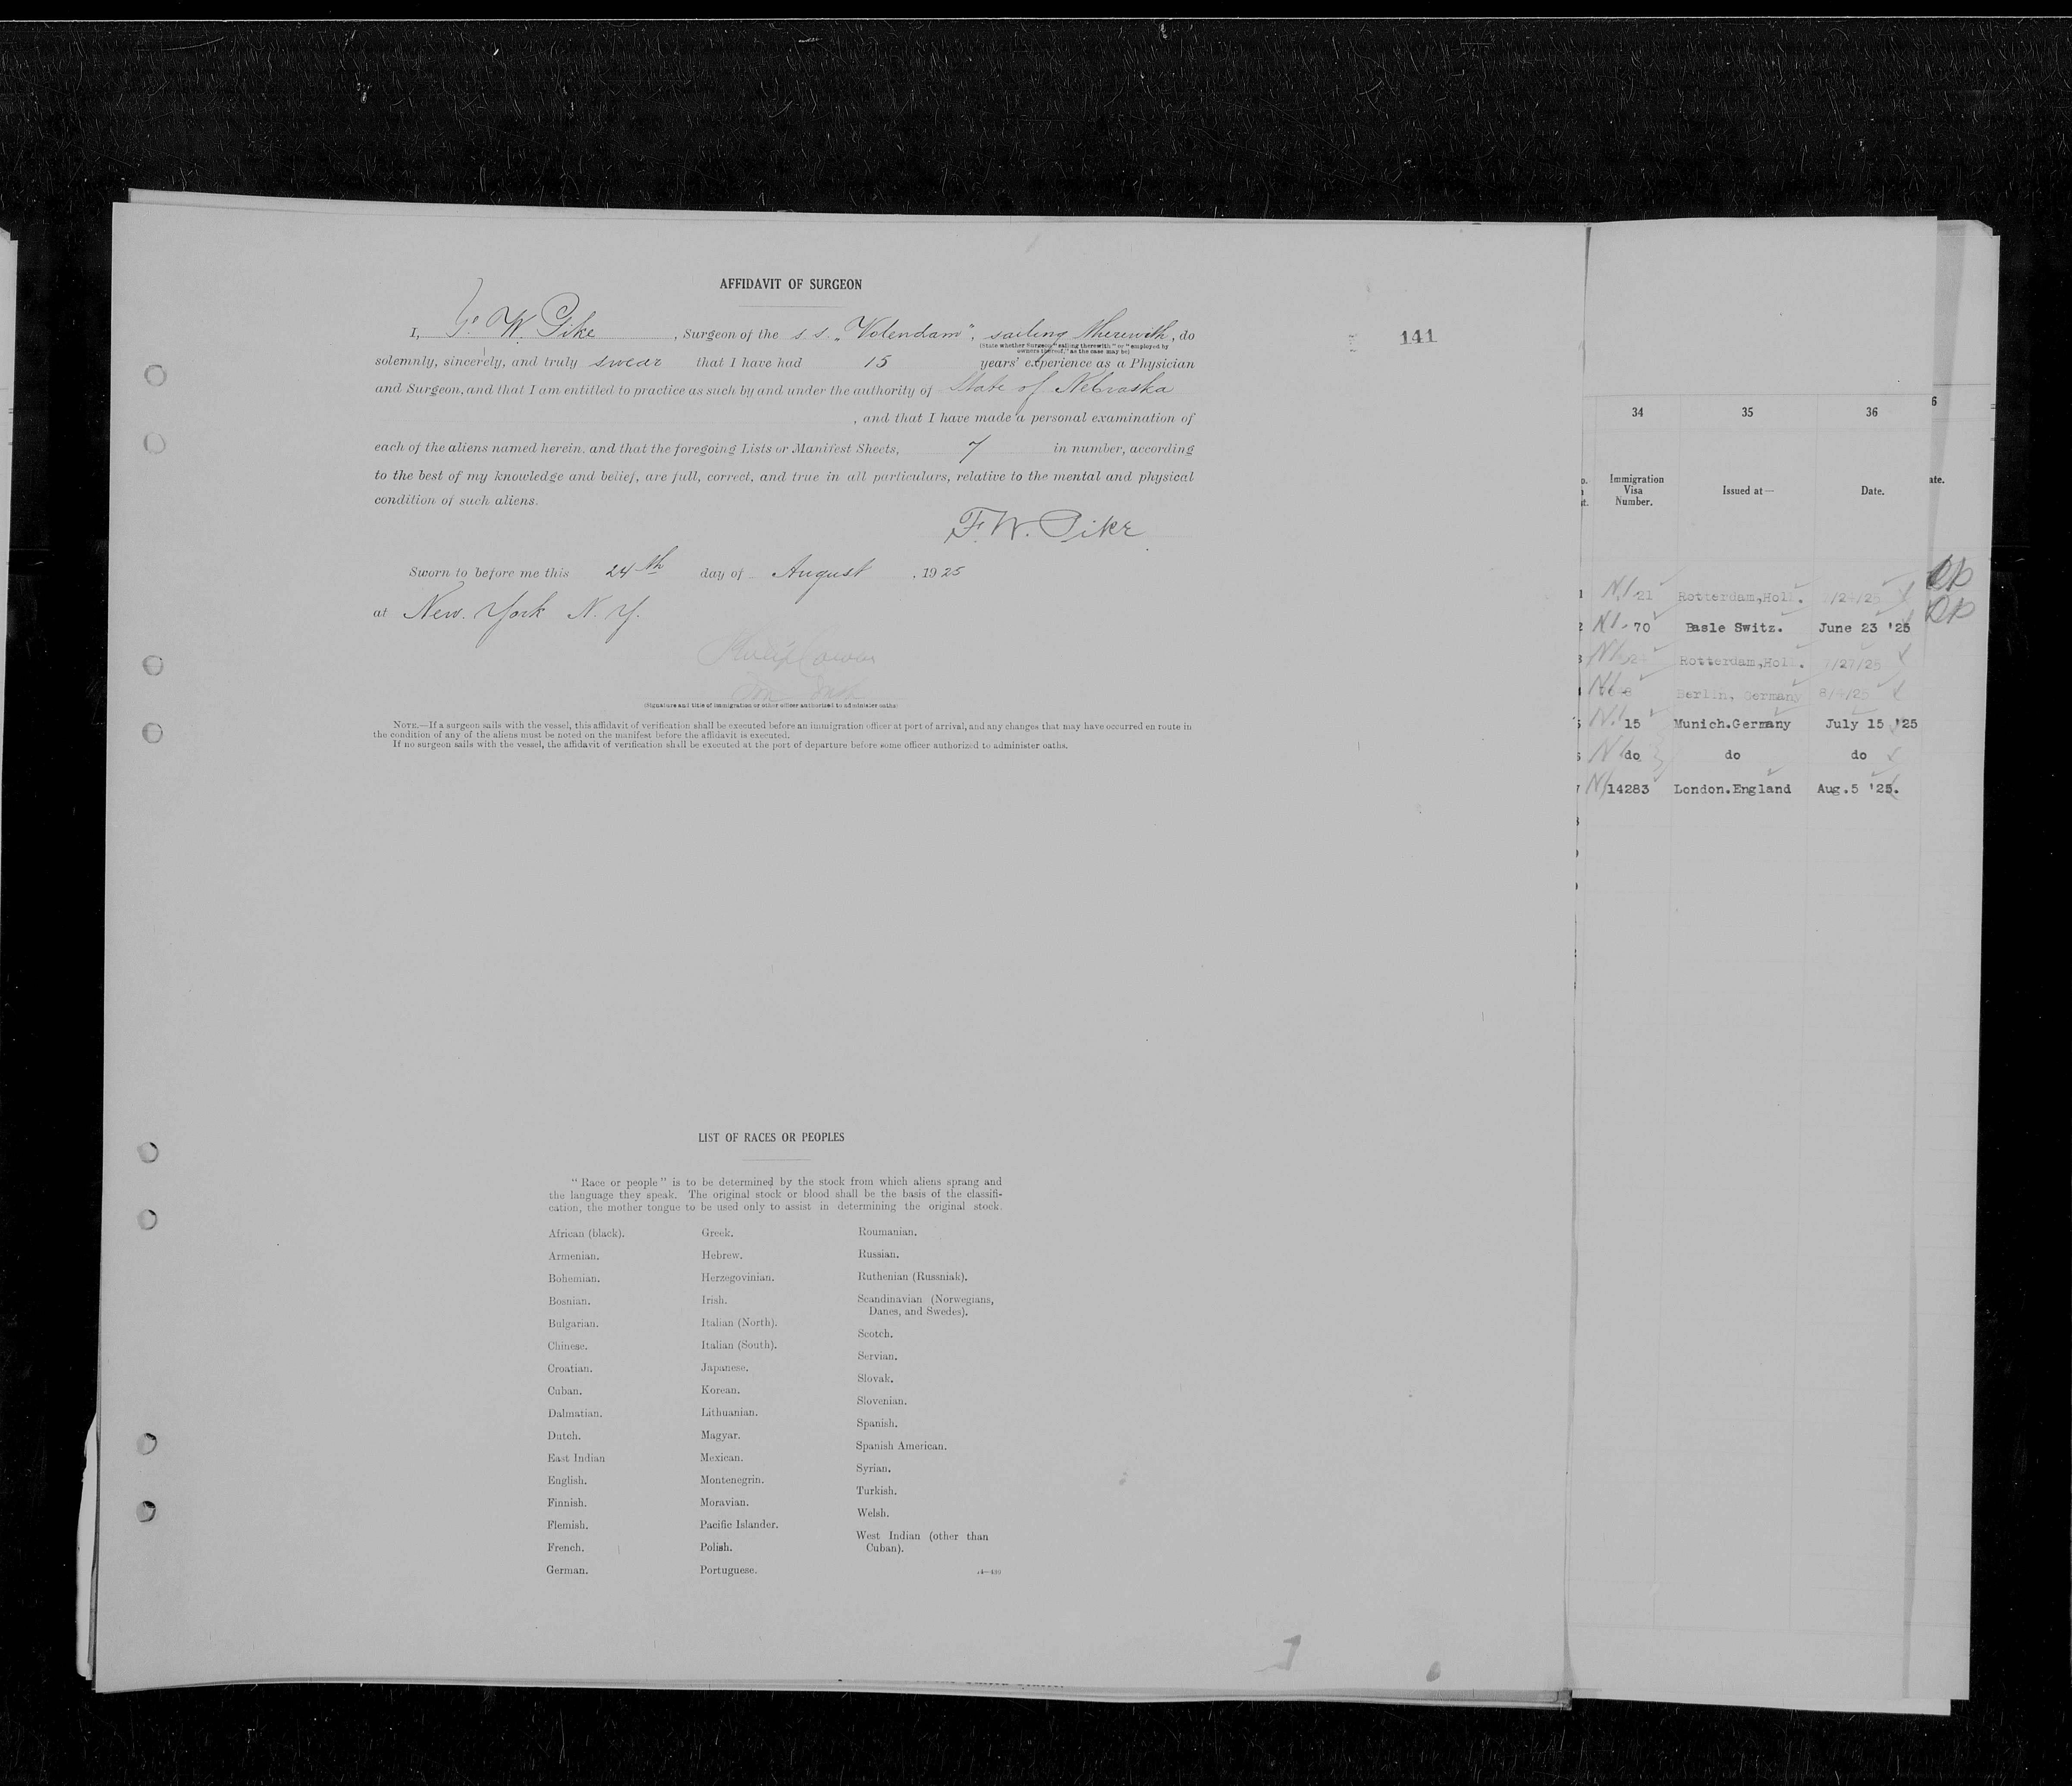 AFFIDAVIT OF SURGEON
141
I, F. W. Pike, Surgeon of the s. s. „Volendam", sailing therewith, do
(State whether Surgeon "sailing therewith" or "employed by
owners thereof," as the case may be)
solemnly, sincerely, and truly swear that I have had 15 years' experience as a Physician
and Surgeon, and that I am entitled to practice as such by and under the authority of State of Nebraska
, and that I have made a personal examination of
each of the aliens named herein, and that the foregoing Lists or Manifest Sheets, 7 in number, according
to the best of my knowledge and belief, are full, correct, and true in all particulars, relative to the mental and physical
condition of such aliens.
F. W. Pike
Sworn to before me this 24th day of August, 1925
at New. York N. Y.
(Signature and title of immigration or other officer authorized to administer oaths)
NOTE.—If a surgeon sails with the vessel, this affidavit of verification shall be executed before an immigration officer at port of arrival, and any changes that may have occurred en route in
the condition of any of the aliens must be noted on the manifest before the affidavit is executed.
If no surgeon sails with the vessel, the affidavit of verification shall be executed at the port of departure before some officer authorized to administer oaths.
LIST OF RACES OR PEOPLES
"Race or people" is to be determined by the stock from which aliens sprang and
the language they speak. The original stock or blood shall be the basis of the classifi-
cation, the mother tongue to be used only to assist in determining the original stock.
African (black).
Armenian.
Bohemian.
Bosnian.
Bulgarian.
Chinese.
Croatian.
Cuban.
Dalmatian.
Dutch.
East Indian
English.
Finnish.
Flemish.
French.
German.
Greek.
Hebrew.
Herzegovinian.
Irish.
Italian (North).
Italian (South).
Japanese.
Korean.
Lithuanian.
Magyar.
Mexican.
Montenegrin.
Moravian.
Pacific Islander.
Polish.
Portuguese.
Roumanian.
Russian.
Ruthenian (Russniak).
Scandinavian (Norwegians,
Danes, and Swedes).
Scotch.
Servian.
Slovak.
Slovenian.
Spanish.
Spanish American.
Syrian.
Turkish.
Welsh.
West Indian (other than
Cuban).
14—430
34 35 36
Immigration
Visa
Number.
Issued at—
Date.
21 Rotterdam,Holl. /24/25
70 Basle Switz. June 23 '25
Rotterdam,Holl. /27/25
Berlin, Germany 8/4/25
15 Munich.Germany July 15 '25
do do do
14283 London.England Aug.5 '25.